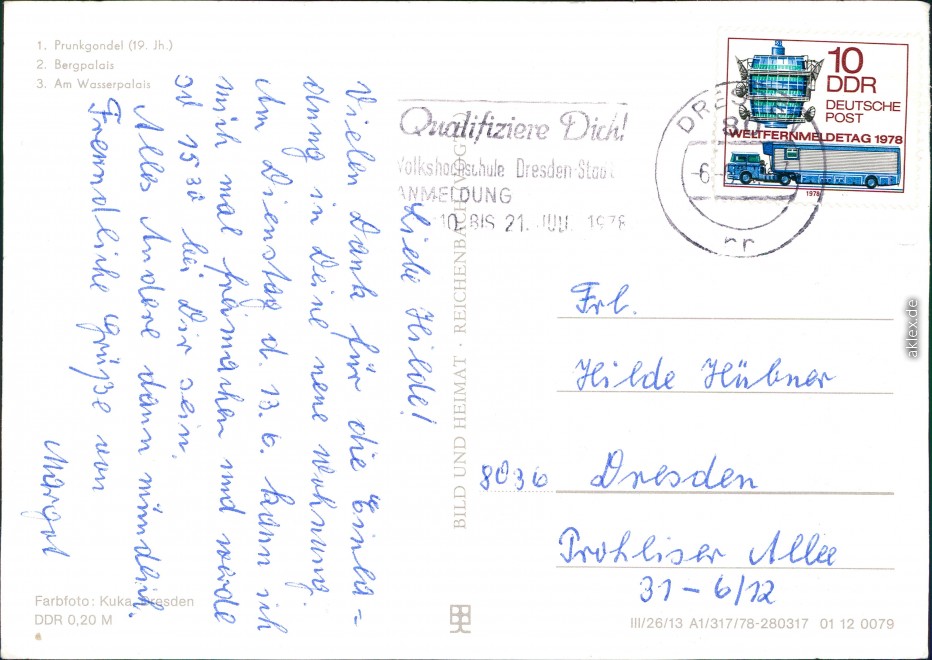 1. Prunkgondel (19. Jh.)
2. Bergpalais
3. Am Wasserpalais
Liebe Hilde!
Vielen Dank für die Einla=
dung in Deine neue Wohnung.
Am Dienstag d. 13. 6. kann ich
mich mal freimachen und werde
so 15³⁰ bei Dir sein.
Alles Andere dann mündlich.
Freundliche Grüße von
Margot
Farbfoto: Kuka, Dresden
DDR 0,20 M
BILD UND HEIMAT · REICHENBACH VOGTL
Qualifiziere Dich!
Volkshochschule Dresden-Stadt
ANMELDUNG
10. BIS 21. JULI 1978
DRESDEN
80
-6.
10
DDR
DEUTSCHE
POST
WELTFERNMELDETAG 1978
1978
Frl.
Hilde Hübner
8036 Dresden
Prohliser Allee
31 – 6/12
III/26/13 A1/317/78-280317 01 12 0079
aklex.de